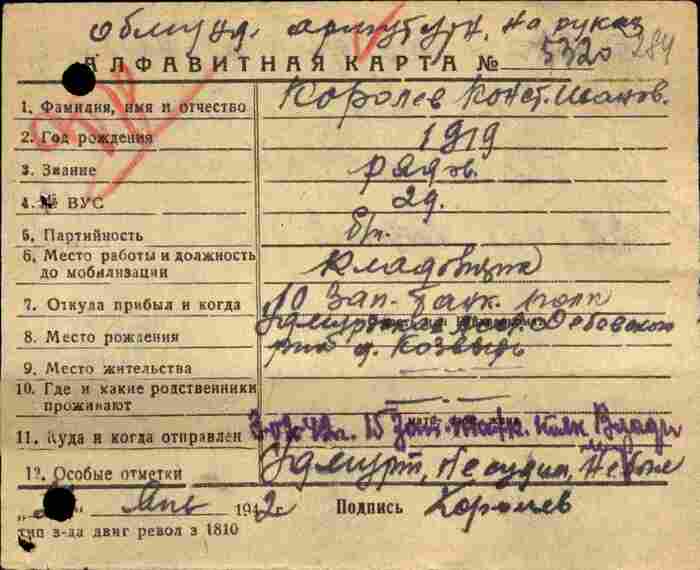 на руках
АЛФАВИТНАЯ КАРТА № 5320 284
1. Фамилия, имя и отчество Королев Конст. Иванов.
2. Год рождения 1919
3. Звание рядов.
4. № ВУС 2д.
5. Партийность б/п.
6. Место работы и должность до мобилизации Кладовщик
7. Откуда прибыл и когда 10 Зап. танк. полк
8. Место рождения Удмуртская Дебовский
9. Место жительства р-н д. Козвыдь
10. Где и какие родственники проживают — " —
11. Куда и когда отправлен 42г. 15 зап. полк Влади
12. Особые отметки Удмурт, не судим,
Янв 1942г. Подпись Королев
тип з-да двиг револ з 1810